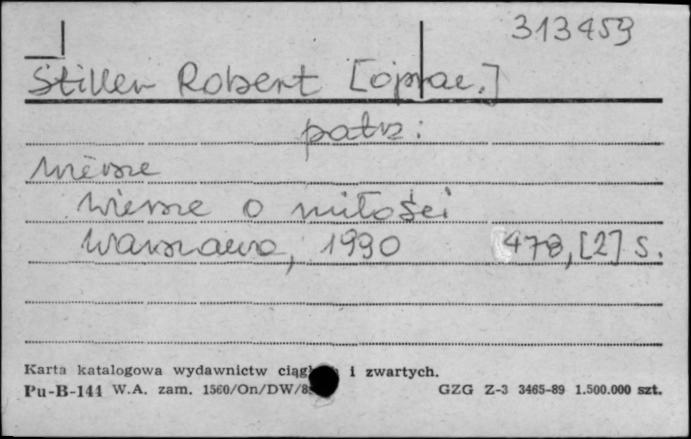 313459
Stiller Robert [oprac.]
patrz:
Wiersze
Wiersze o miłości
Warszawa, 1990 478, [2] s.
Karta katalogowa wydawnictw i zwartych.
Pu-B-144 W.A. zam. 1560/On/DW/8 GZG Z-3 3465-89 1.500.000 szt.